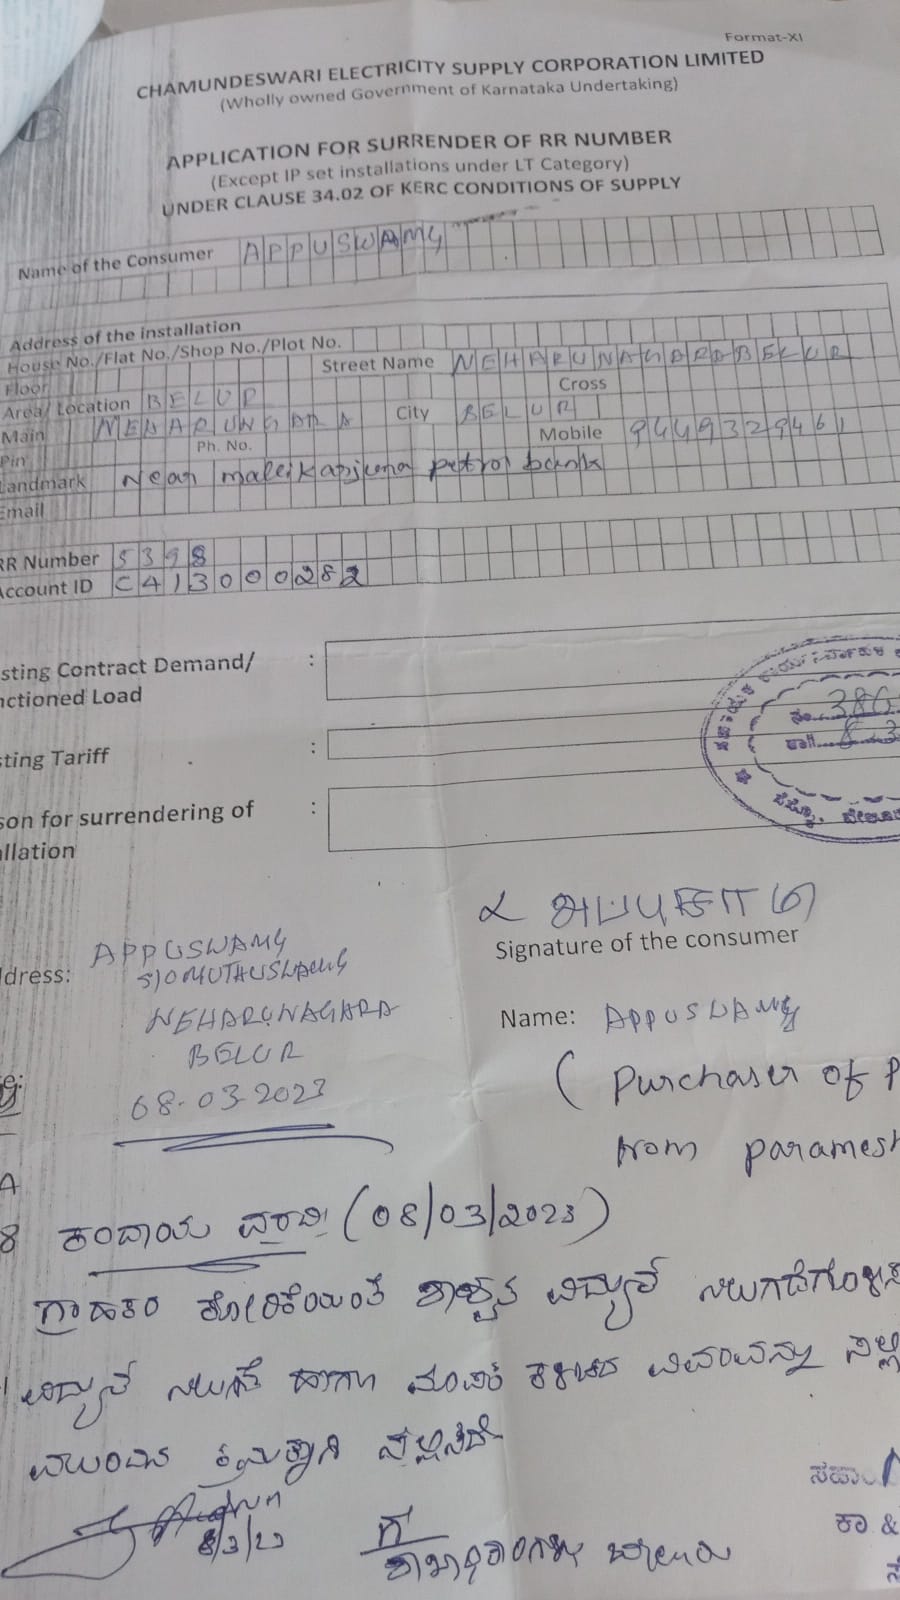 Format-XI
CHAMUNDESWARI ELECTRICITY SUPPLY CORPORATION LIMITED
(Wholly owned Government of Karnataka Undertaking)
APPLICATION FOR SURRENDER OF RR NUMBER
(Except IP set installations under LT Category)
UNDER CLAUSE 34.02 OF KERC CONDITIONS OF SUPPLY
Name of the Consumer APPUSWAMY
Address of the installation
House No./Flat No./Shop No./Plot No.
Floor Street Name NEHARUNAGARA BELUR
Area/ Location BELUR Cross
Main NEHARUNGARA City BELUR
Pin Ph. No. Mobile 9449329461
Landmark Near petrol bank
Email
RR Number 5398
Account ID C413000282
sting Contract Demand/ :
nctioned Load
sting Tariff :
son for surrendering of :
allation
ನಂ. 380
ದಿ 8-3
α அப்புசாமி
Signature of the consumer
dress: APPUSWAMY
S/O MUTHUSWAMY
NEHARUNAGARA
BELUR
08-03-2023
Name: APPUSWAMY
(Purchaser of P
from paramesh
A
8 ಕಂದಾಯ ವರದಿ (08/03/2023)
ಗ್ರಾಹಕರ ಕೋರಿಕೆಯಂತೆ ಶಾಶ್ವತ ವಿದ್ಯುತ್
ವಿದ್ಯುತ್ ಹಾಗೂ ಮಾಪಕ ವಿವರವನ್ನು
ಕ್ರಮಕ್ಕಾಗಿ ಸಲ್ಲಿಸಿದೆ
8/3/23
ಗೆ
ಶಾಖಾಧಿಕಾರಿಗಳು ಬೇಲೂರು
ಸಹಾ
ಕಾ &